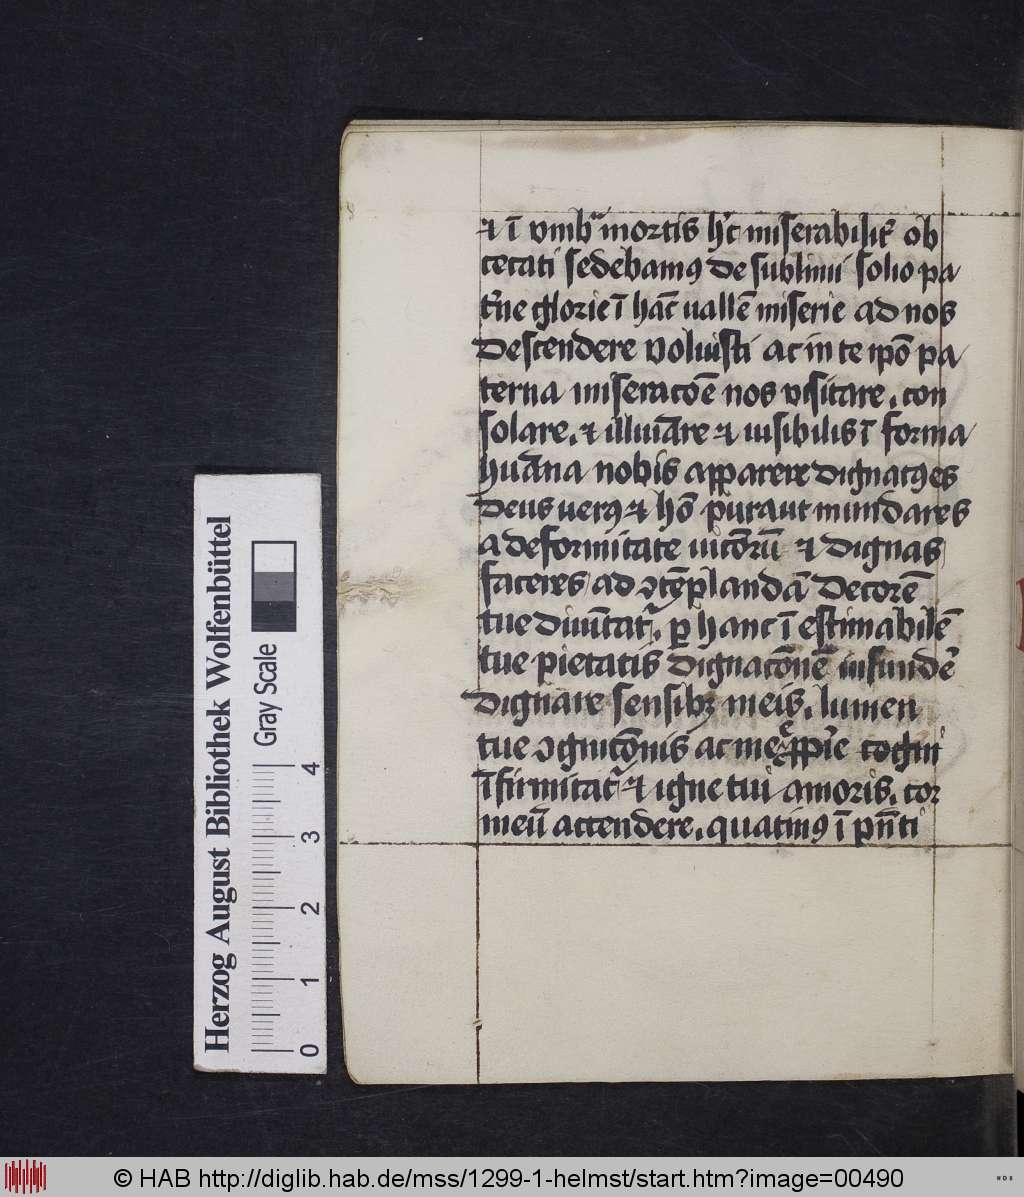 ⁊ ī vmbᵃ mortis hͨ miserabilit᷒ ob
cecati sedebamꝰ de sublimi solio pa
t᷒ne glorie ī hāc uallē miserie ad nos
descendere voluisti ac in te ipō pa
terna miseracōe nos visitare. con
solare. ⁊ illuīare ⁊ uisibilis ī forma
huāna nobis apparere dignatꝰ es
deus uerꝰ ⁊ hō puraut mundares
a deformitate uicōrū ⁊ dignas
faceres ad ↄtēplandā decorē
tue diuītatꝭ. ꝑ hanc ī estimabilē
tue pietatis dignacōnē infundē
dignare sensibꝫ meis. lumen
tue ↄgnicōnis ac me ꝓprie cogni
īfirmitatꝭ ⁊ igne tui amoris. cor
meū accendēre. quatinꝰ ī pn̄ti
Herzog August Bibliothek Wolfenbüttel
Gray Scale
0 1 2 3 4
© HAB http://diglib.hab.de/mss/1299-1-helmst/start.htm?image=00490